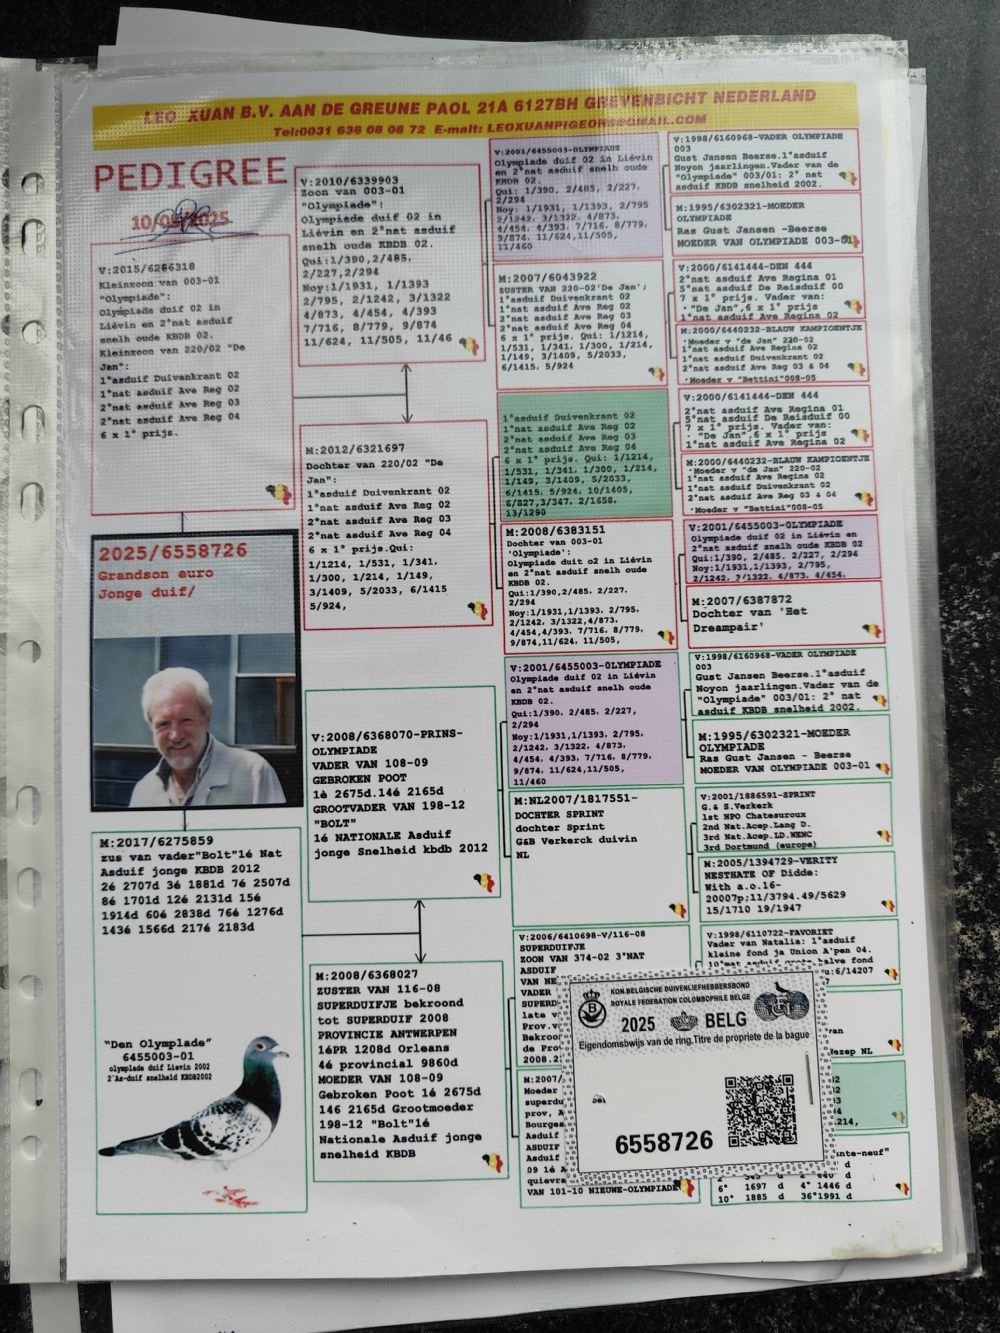 LEO XUAN B.V. AAN DE GREUNE PAOL 21A 6127BH GREVENBICHT NEDERLAND
Tel:0031 636 08 08 72 E-malt: LEOXUANPIGEONS@GMAIL.COM
PEDIGREE
10/05/2025
V:2015/6286318
Kleinzoon van 003-01
"Olympiade":
Olympiade duif 02 in
Liévin en 2°nat asduif
snelh oude KBDB 02.
Kleinzoon van 220/02 "De
Jan":
1°asduif Duivenkrant 02
1°nat asduif Ave Reg 02
2°nat asduif Ave Reg 03
2°nat asduif Ave Reg 04
6 x 1° prijs.
2025/6558726
Grandson euro
Jonge duif/
M:2017/6275859
zus van vader"Bolt"1é Nat
Asduif jonge KBDB 2012
2é 2707d 3é 1881d 7é 2507d
8é 1701d 12é 2131d 15é
1914d 60é 2838d 76é 1276d
143é 1566d 217é 2183d
"Den Olymplade"
6455003-01
olymplade duif Lievin 2002
2°As-duif snelheid KBDB2002
V:2010/6339903
Zoon van 003-01
"Olympiade":
Olympiade duif 02 in
Liévin en 2°nat asduif
snelh oude KBDB 02.
Qui:1/390,2/485,
2/227,2/294
Noy:1/1931, 1/1393
2/795, 2/1242, 3/1322
4/873, 4/454, 4/393
7/716, 8/779, 9/874
11/624, 11/505, 11/46
M:2012/6321697
Dochter van 220/02 "De
Jan":
1°asduif Duivenkrant 02
1°nat asduif Ave Reg 02
2°nat asduif Ave Reg 03
2°nat asduif Ave Reg 04
6 x 1° prijs.Qui:
1/1214, 1/531, 1/341.
1/300, 1/214, 1/149,
3/1409, 5/2033, 6/1415
5/924,
V:2008/6368070-PRINS-
OLYMPIADE
VADER VAN 108-09
GEBROKEN POOT
1è 2675d.14é 2165d
GROOTVADER VAN 198-12
"BOLT"
1é NATIONALE Asduif
jonge Snelheid kbdb 2012
M:2008/6368027
ZUSTER VAN 116-08
SUPERDUIFJE bekroond
tot SUPERDUIF 2008
PROVINCIE ANTWERPEN
16PR 1208d Orleans
4é provincial 9860d
MOEDER VAN 108-09
Gebroken Poot 1é 2675d
14é 2165d Grootmoeder
198-12 "Bolt"1é
Nationale Asduif jonge
snelheid KBDB
V:2001/6455003-OLYMPIADE
Olympiade duif 02 in Liévin
en 2°nat asduif snelh oude
KBDB 02.
Qui: 1/390, 2/485, 2/227,
2/294
Noy: 1/1931, 1/1393, 2/795
2/1242. 3/1322, 4/873,
4/454, 4/393. 7/716, 8/779,
9/874, 11/624, 11/505,
11/460
M:2007/6043922
ZUSTER VAN 220-02'De Jan';
1°asduif Duivenkrant 02
1°nat asduif Ave Reg 02
2°nat asduif Ave Reg 03
2°nat asduif Ave Reg 04
6 x 1° prijs. Qui: 1/1214,
1/531, 1/341. 1/300, 1/214,
1/149, 3/1409, 5/2033,
6/1415. 5/924
1°asduif Duivenkrant 02
1°nat asduif Ave Reg 02
2°nat asduif Ave Reg 03
2°nat asduif Ave Reg 04
6 x 1° prijs. Qui: 1/1214,
1/531, 1/341. 1/300, 1/214,
1/149, 3/1409, 5/2033,
6/1415. 5/924, 10/1405,
6/827,3/347, 2/1658,
13/1290
M:2008/6383151
Dochter van 003-01
'Olympiade':
Olympiade duit o2 in Liévin
en 2°nat asduif snelh oude
KBDB 02.
Qui:1/390,2/485, 2/227.
2/294
Noy:1/1931,1/1393, 2/795.
2/1242, 3/1322,4/873,
4/454,4/393, 7/716, 8/779,
9/874,11/624, 11/505,
V:2001/6455003-OLYMPIADE
Olympiade duif 02 in Liévin
en 2°nat asduif snelh oude
KBDB 02.
Qui:1/390, 2/485, 2/227,
2/294
Noy:1/1931,1/1393, 2/795,
2/1242, 3/1322, 4/873,
4/454, 4/393, 7/716, 8/779,
9/874, 11/624,11/505,
11/460
M:NL2007/1817551-
DOCHTER SPRINT
dochter Sprint
G&B Verkerck duivin
NL
V:2006/6410698-V/116-08
SUPERDUIFJE
ZOON VAN 374-02 3°NAT
ASDUIF
VAN NE
VADER
SUPERD
late v
Prov.v
Bekroo
de Pro
2008.2
M:2007/
Moeder
superdu
prov, A
Bourges
Asduif
ASDUIF
Asduif
09 1é A
quievra
VAN 101-10 NIEUWE-OLYMPIADE
V:1998/6160968-VADER OLYMPIADE
003
Gust Jansen Beerse.1°asduif
Noyon jaarlingen.Vader van de
"Olympiade" 003/01: 2° nat
asduif KBDB snelheid 2002.
M:1995/6302321-MOEDER
OLYMPIADE
Ras Gust Jansen -Beerse
MOEDER VAN OLYMPIADE 003-01
V:2000/6141444-DEN 444
2°nat asduif Ave Regina 01
5°nat asduif De Reisduif 00
7 x 1° prijs. Vader van:
· "De Jan",6 x 1° prijs
1°nat asduif Ave Regina 02
M:2000/6440232-BLAUW KAMPIOENTJE
·Moeder v "de Jan" 220-02
1°nat asduif Ave Regina 02
1°nat asduif Duivenkrant 02
2°nat asduif Ave Reg 03 & 04
·Moeder v "Bettini"008-05
V:2000/6141444-DEN 444
2°nat asduif Ave Regina 01
5°nat asduif De Reisduif 00
7 x 1° prijs. Vader van:
· "De Jan",6 x 1° prijs
1°nat asduif Ave Regina 02
M:2000/6440232-BLAUW KAMPIOENTJE
·Moeder v "de Jan" 220-02
1°nat asduif Ave Regina 02
1°nat asduif Duivenkrant 02
2°nat asduif Ave Reg 03 & 04
·Moeder v "Bettini"008-05
V:2001/6455003-OLYMPIADE
Olympiade duif 02 in Liévin en
2°nat asduif snelh oude KBDB 02
Qui:1/390, 2/485, 2/227, 2/294
Noy:1/1931,1/1393, 2/795,
2/1242, 3/1322, 4/873, 4/454.
M:2007/6387872
Dochter van 'Het
Dreampair'
V:1998/6160968-VADER OLYMPIADE
003
Gust Jansen Beerse.1°asduif
Noyon jaarlingen.Vader van de
"Olympiade" 003/01: 2° nat
asduif KBDB snelheid 2002.
M:1995/6302321-MOEDER
OLYMPIADE
Ras Gust Jansen - Beerse
MOEDER VAN OLYMPIADE 003-01
V:2001/1886591-SPRINT
G.& S.Verkerk
1st NPO Chatesuroux
2nd Nat.Acep.Lang D.
3rd Nat.Acep.LD.WENC
3rd Dortmund (europe)
M:2005/1394729-VERITY
NESTHATE OF Didde:
With a.o.16-
20007p;11/3794.49/5629
15/1710 19/1947
V:1998/6110722-FAVORIET
Vader van Natalia: 1°asduif
kleine fond ja Union A'pen 04.
10°nat asduif grote halve fond
u:6/14207
van
Jezep NL
02
02
03
04
214,
ante-neuf"
d
2° 343 d 2° 640 d
6° 1697 d 4° 1446 d
10° 1885 d 36°1991 d
KON.BELGISCHE DUIVENLIEFHEBBERSBOND
ROYALE FEDERATION COLOMBOPHILE BELGE
2025 BELG
Eigendomsbwijs van de ring.Titre de propriete de la bague
6558726